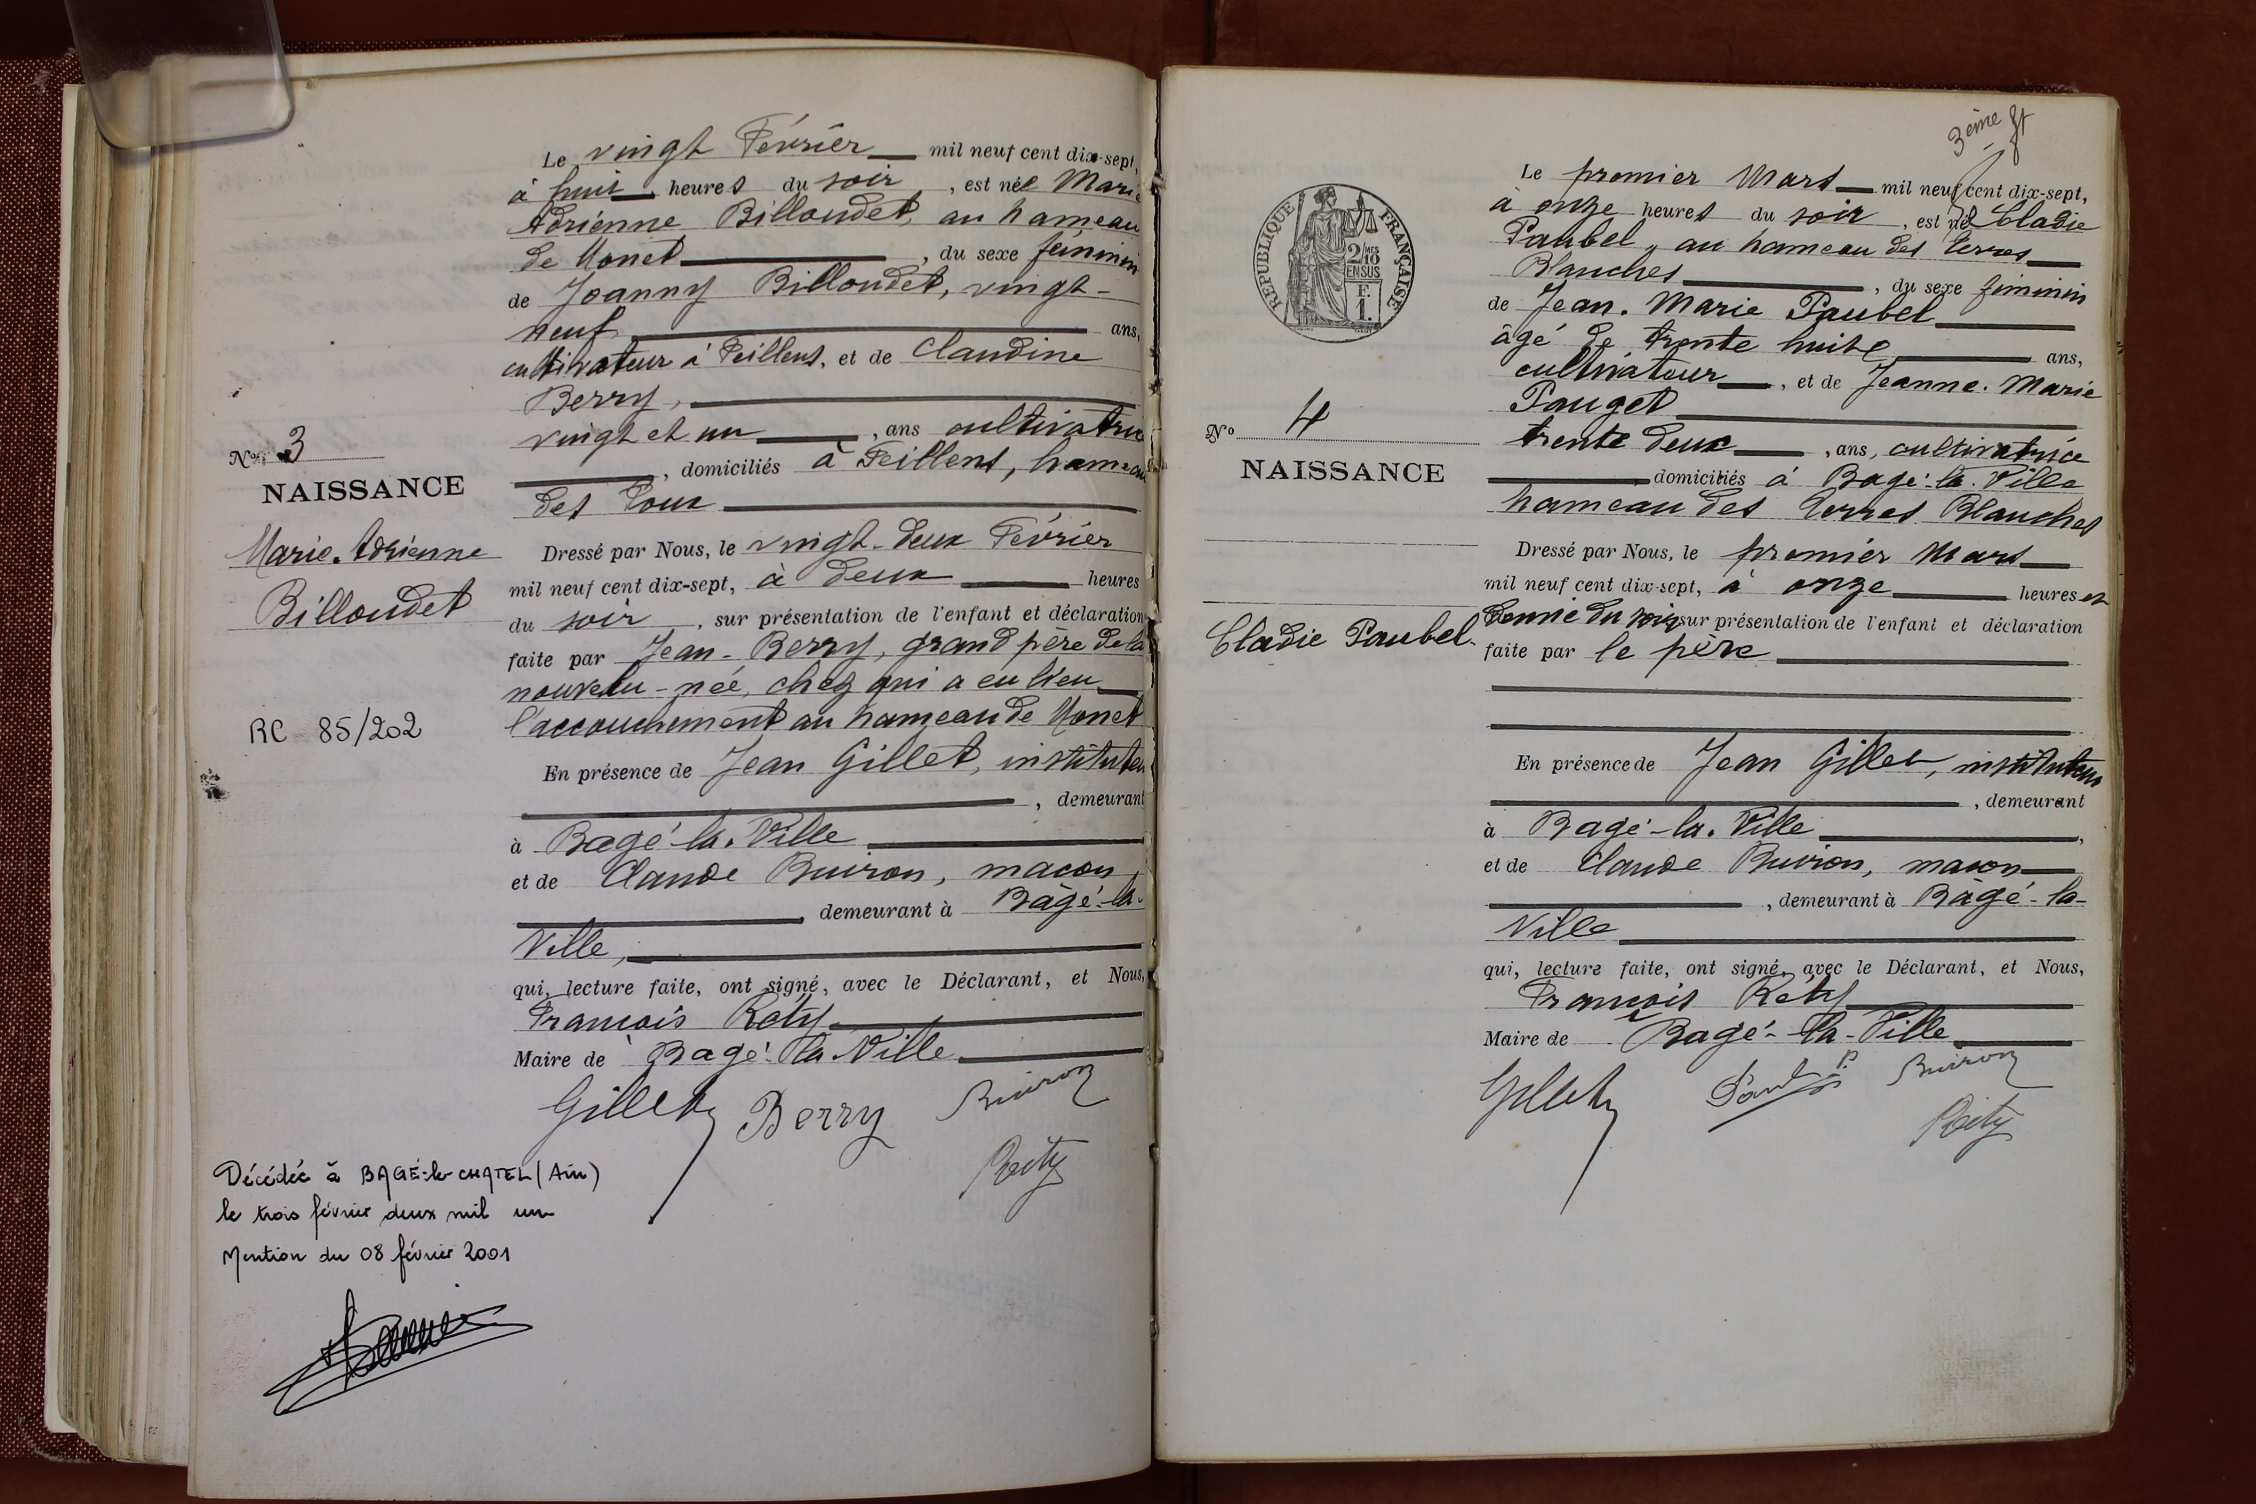 Le vingt Février mil neuf cent dix-sept,
à huit heures du soir, est née Marie
Adrienne Billoudet, au hameau
de Monet, du sexe féminin
de Joanny Billoudet, vingt-
neuf ans,
cultivateur à Feillens, et de Claudine
Berry,
vingt et un, ans cultivatrice
, domiciliés à Feillens, hameau
des
Nº 3
NAISSANCE
Marie-Adrienne
Billoudet
RC 85/202
Dressé par Nous, le vingt-deux Février
mil neuf cent dix-sept, à deux heures
du soir, sur présentation de l'enfant et déclaration
faite par Jean-Berry, grand père de la
nouvelle-née, chez qui a eu lieu
l'accouchement au hameau de Monet
En présence de Jean Gillet, instituteur
, demeurant
à Bagé-la-Ville
et de Claude Buiron, maçon,
demeurant à Bâgé-la-
Ville,
qui, lecture faite, ont signé, avec le Déclarant, et Nous,
François Réty
Maire de Bagé-la-Ville
Gillet Berry Buiron
Réty
Décédée à BAGÉ-le-CHATEL (Ain)
le trois février deux mil un
Mention du 08 février 2001
3ème ft
RÉPUBLIQUE FRANÇAISE
2/10
EN SUS
F.
1.
Le premier Mars mil neuf cent dix-sept,
à onze heures du soir, est née Cladie
Paubel, au hameau des Terres
Blanches, du sexe féminin
de Jean-Marie Paubel
âgé de trente huit ans,
cultivateur, et de Jeanne-Marie
Pauget
trente deux, ans, cultivatrice
domiciliés à Bagé-la-Ville
hameau des Terres Blanches
Nº 4
NAISSANCE
Cladie Paubel
Dressé par Nous, le premier Mars
mil neuf cent dix-sept, à onze heures et
demie du soir sur présentation de l'enfant et déclaration
faite par le père
En présence de Jean Gillet, instituteur
, demeurant
à Bagé-la-Ville,
et de Claude Buiron, maçon
, demeurant à Bâgé-la-
Ville
qui, lecture faite, ont signé, avec le Déclarant, et Nous,
François Réty
Maire de Bagé-la-Ville
Gillet Buiron
Réty